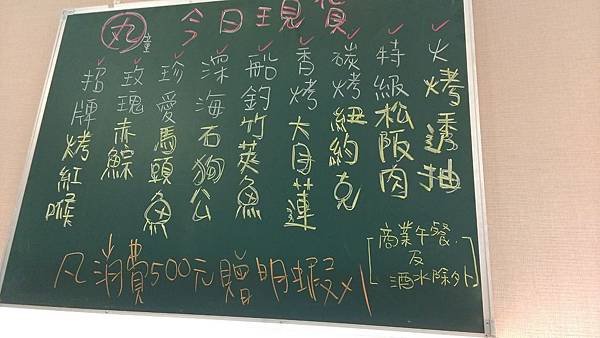 丸童 今日現貨
火烤透抽
特級松阪肉
碳烤紐約克
香烤大目蓮
船釣竹莢魚
深海石狗公
珍愛馬頭魚
玫瑰赤鯮
招牌烤紅喉
[商業午餐.
及
酒水除外]
凡消費500元贈明蝦x1